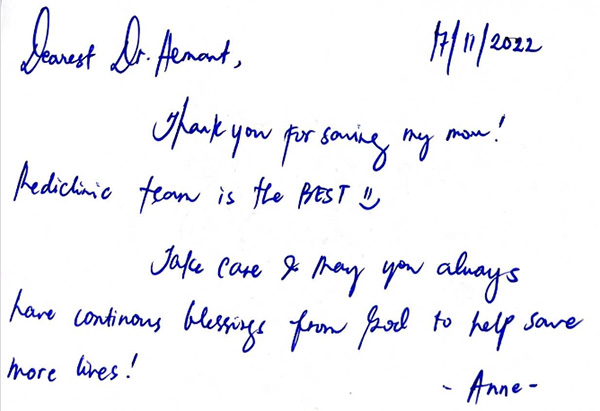 Dearest Dr. Hemant, 17/11/2022
Thank you for saving my mom!
Mediclinic team is the BEST :)
Take care & may you always
have continous blessings from God to help save
more lives!
- Anne -